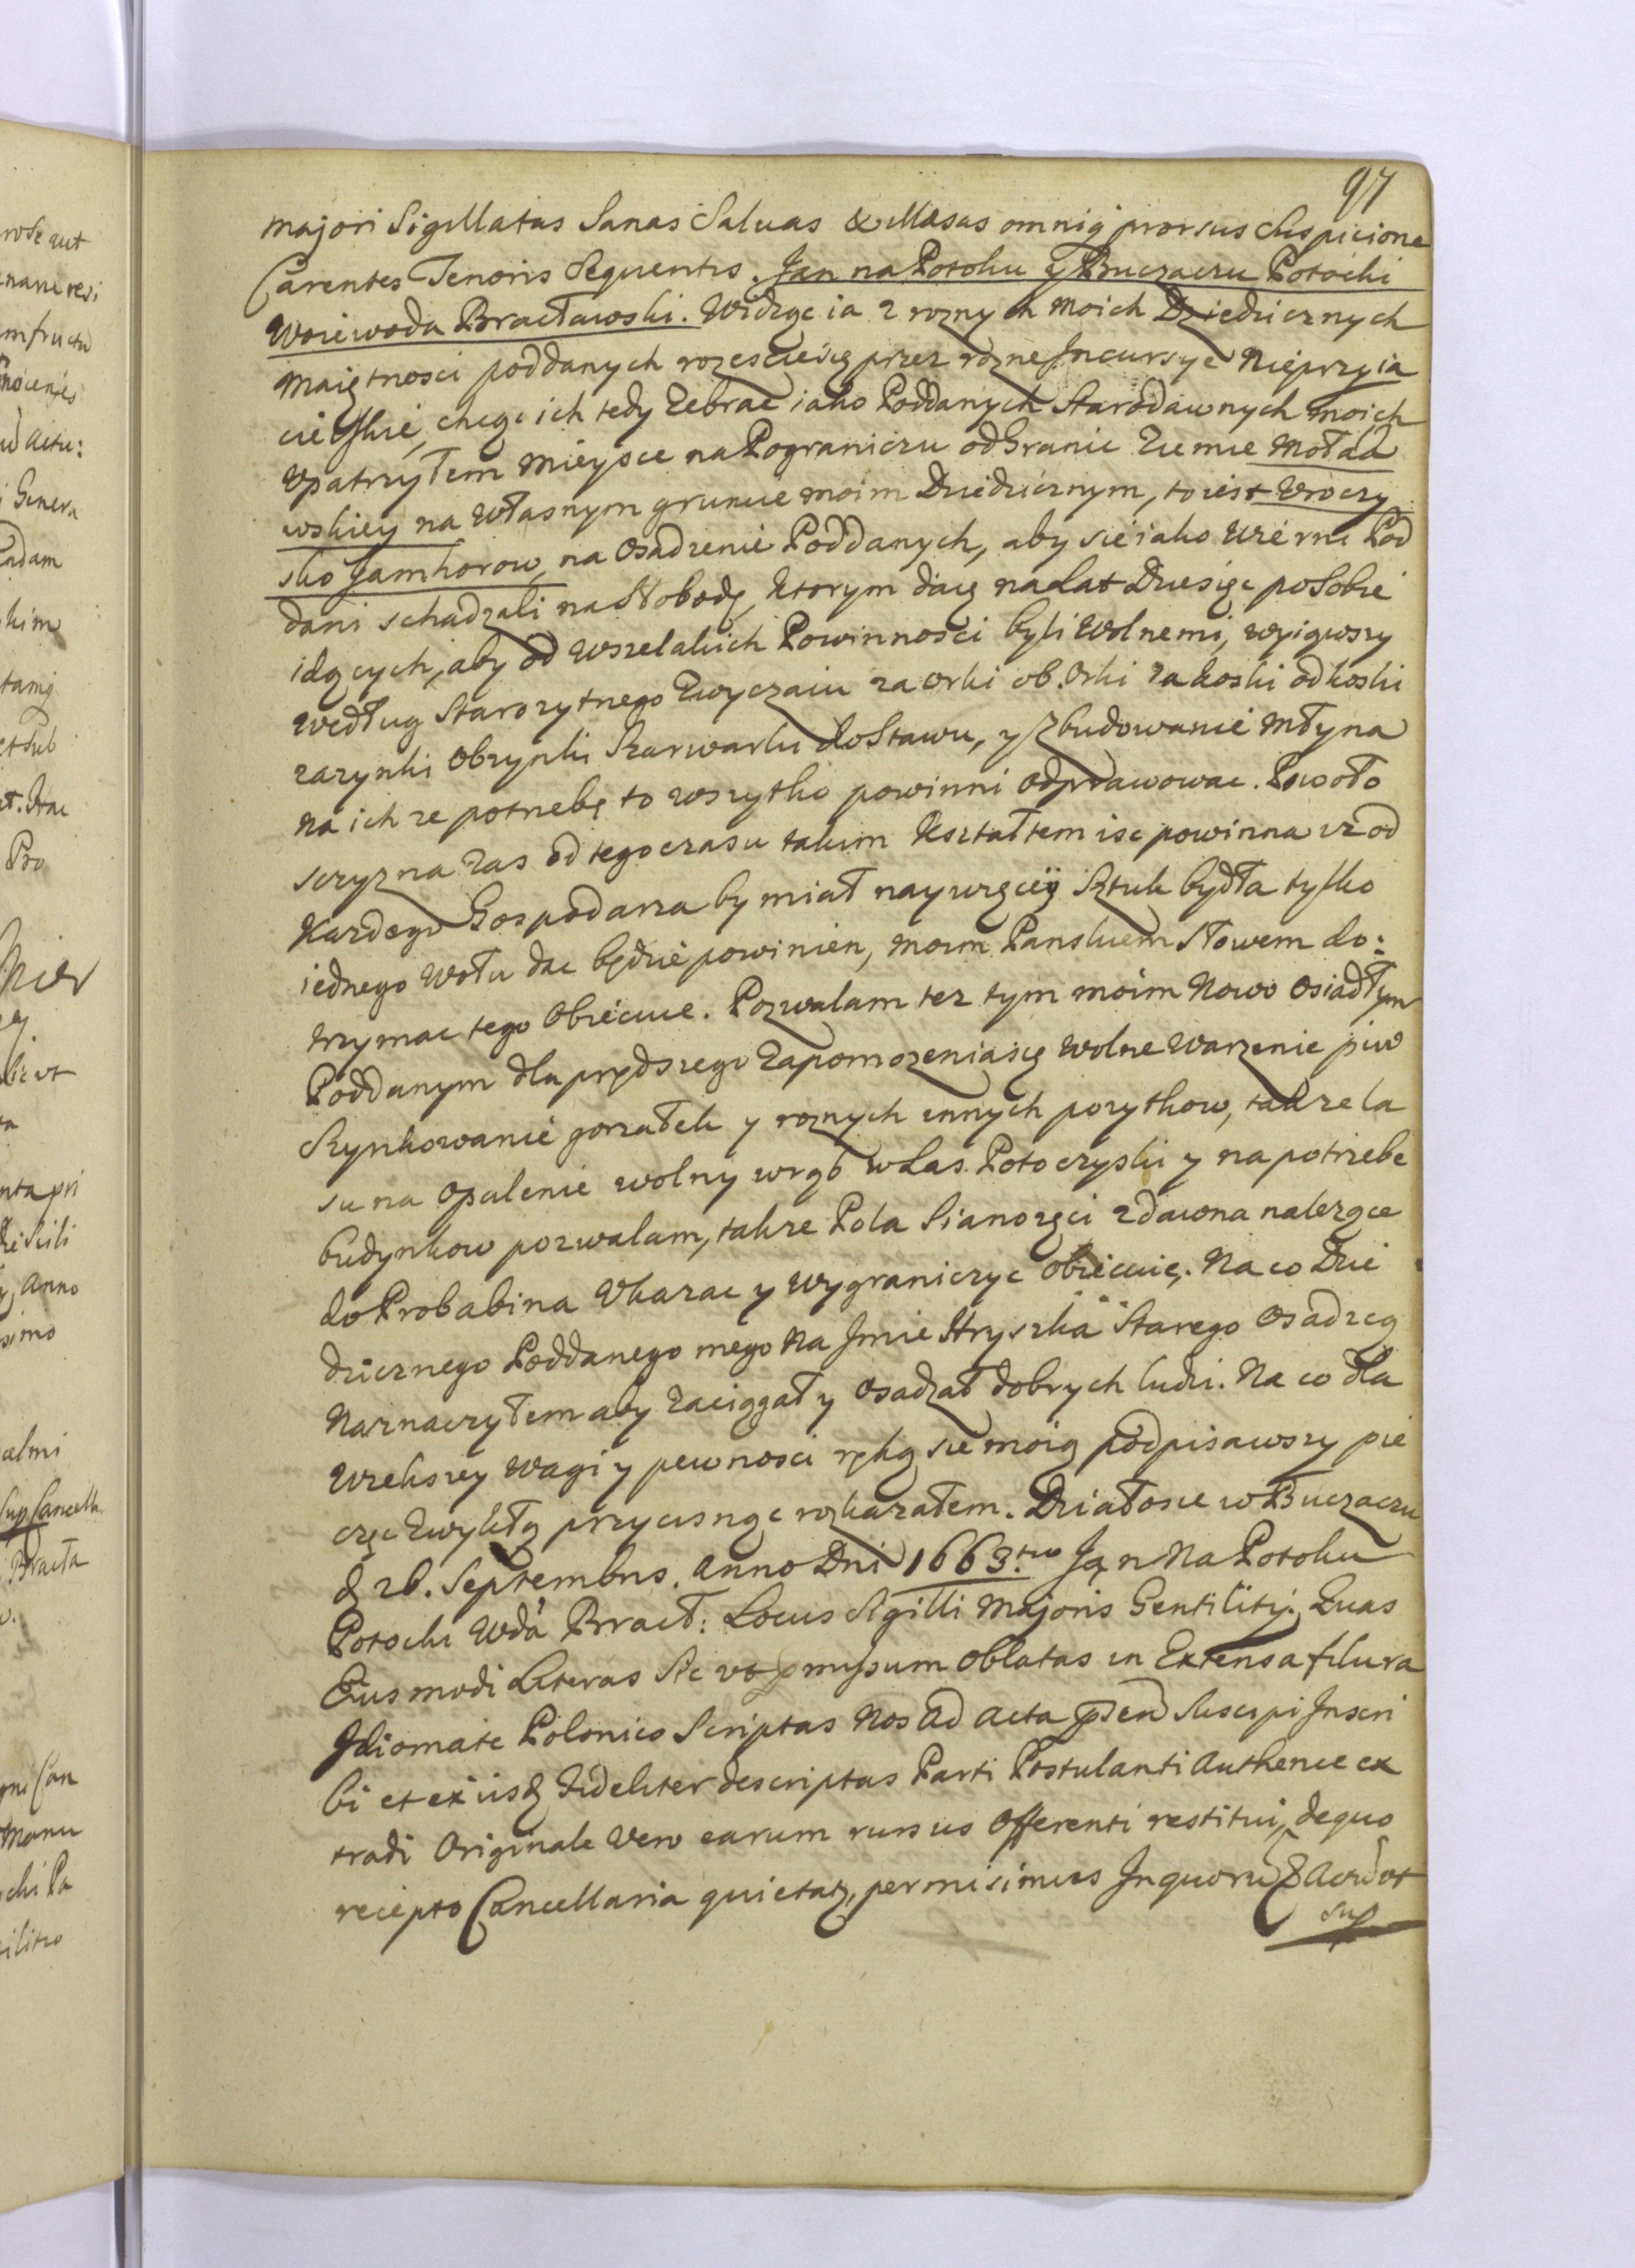 97
majori Sigillatas Sanas Saluas & Illæsas omniq prorsus Suspicione
Carentes Tenoris Sequentis. Jan na Potoku y Buczaczu Potocki
Woiewoda Bracławski. Widząc ia z roznych moich Dziedzicznych
Maiętnosci poddanych rozescie się przez rozne Incursye Nieprzyia
cielskie, chcąc ich tedy Zebrac iako Poddanych Starodawnych moich
Upatrzyłem mieysce na Pograniczu od Granic Ziemie Mołda
wskiey na własnym gruncie moim Dziedzicznym, to iest Uroczy
sko Jamhorow, na Osadzenie Poddanych, aby sie iako Wierni Pod
dani schadzali na Słobodę, ktorym daię na Lat Dziesięc po Sobie
idących, aby od wszelakich Powinnosci byli Wolnemi, wyiąwszy
według Starozytnego Zwyczaiu za orki ob. Orki zakoski odkoski
zazynki Obzynki Szarwarku do Stawu, y zbudowanie Młyna
na ich ze potrzebę to wszytko powinni odprawowac. Powoło
sczyzna Zas od tego czasu takim Kształtem isc powinna iz od
Kazdego Gospodarza by miał naywięcey Sztuk bydła tylko
iednego Wołu dac będzie powinien, moim Panskiem Słowem do:
trzymac tego Obiecuie. Pozwalam tez tym moim Nowo Osiadłym
Poddanym dla prędszego Zapomozenia się wolne Warzenie piw
Szynkowanie gorzałek y roznych innych pozytkow, takze la
su na Opalenie wolny wrąb w Las. Potoczyski y na potrzebe
budynkow pozwalam, takze Pola Sianozęci zdawna nalezące
do Probabina Ukazac y Wygraniczyc obiecuię. Na co Dzie
dzicznego Poddanego mego Na Jmie Hryszka Starego Osadzcą
Naznaczyłem aby Zaciągał y Osadzał dobrych ludzi. Na co dla
Większey Wagi y pewnosci ręką się moią podpisawszy pie
częc Zwykłą przycisnąc rozkazałem. Działosie w Buczaczu
D 26. Septembris. Anno Dni 1663.tio Jan Na Potoku
Potocki Wda Bracł: Locus Sigilli Majoris Gentilitij. Quas
Eiusmodi Literas Sic ut pmissum oblatas in Extensa filura
Idiomate Polonico Scriptas Nos Ad Acta Suscipi Inscri
bi et ex iisd Fideliter descriptas Parti Postulanti Authence ex
tradi Originale Vero earum rursus Offerenti restitui, dequo
recepto Cancellaria quietat, permisimus In quoru & Act ut
sup